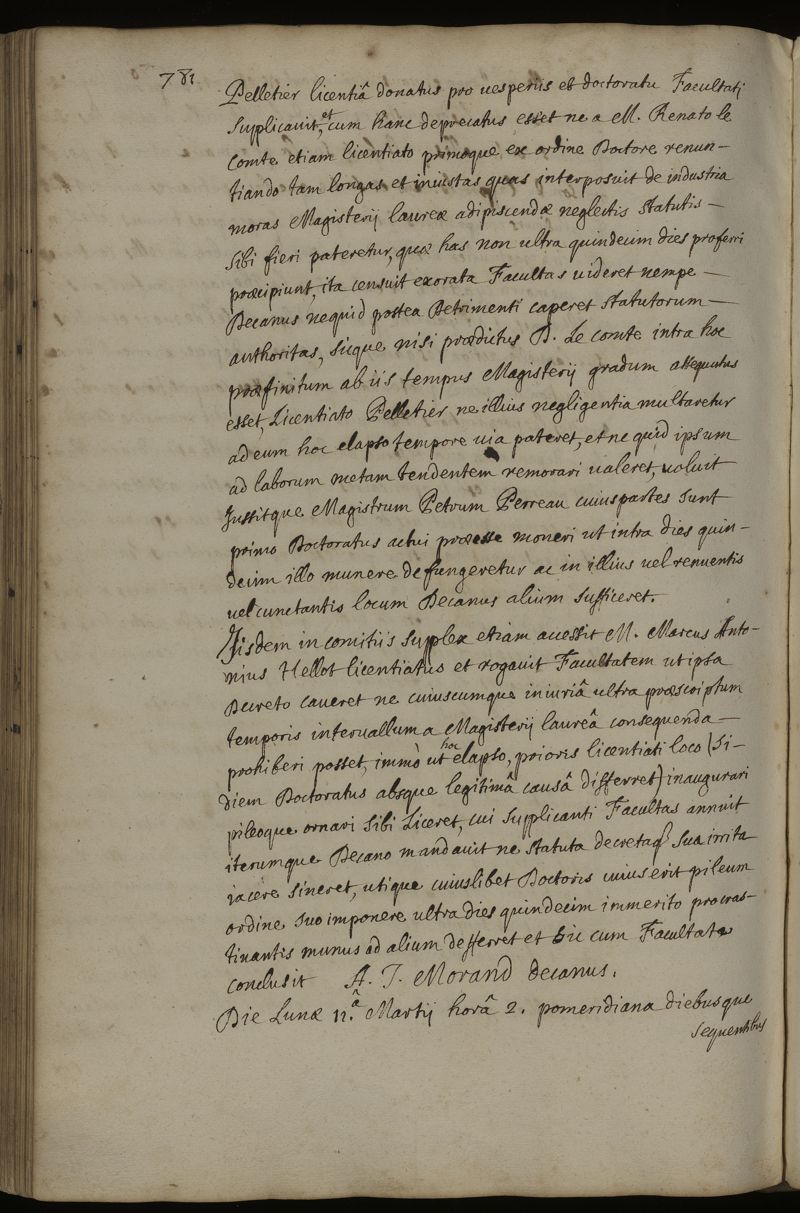 781
Pelletier licentiâ donatus pro uesperiis et doctoratu Facultati
supplicauit, et cum hanc deprecatus esset ne a M. Renato le
Comte etiam licentiato primoque ex ordine Doctore renun-
tiando tam longas et iniustas quas interposuit de industria
moras Magisterij laureæ adipiscendæ neglectis statutis -
sibi fieri pateretur, quæ has non ultra quindecim dies proferri
præcipiunt, ita censuit exorata Facultas uideret nempe -
Decanus nequid postea Detrimenti caperet statutorum -
authoritas, sicque nisi prædictus D. Le comte intra hoc
præfinitum ab iis tempus Magisterij gradum assequutus
esset, Licentiato Pelletier ne illius negligentia multaretur
ad eum hoc elapso tempore uia pateret, et ne quid ipsum
ad laborum metam tendentem remorari ualeret, uoluit
Jussitque Magistrum Petrum Perreau cuius partes sunt
primo Doctoratus actui præesse moneri ut intra dies quin-
decim illo munere defungeretur ac in illius uel renuentis
uel cunctantis locum Decanus alium sufficeret.
Jisdem in comitiis supplex etiam accessit M. Marcus Anto-
nius Hellot licentiatus et rogauit Facultatem ut ipsa
Decreto caueret ne cuiuscumque iniuriâ ultra præscriptum
temporis interuallum a Magisterij laureâ consequenda -
prohiberi posset, immò ut hoc elapso, prioris licentiati loco (si-
diem Doctoratus absque legitimâ causâ differret) inaugurari
pileoque ornari sibi Liceret, cui supplicanti Facultas annuit
iterumque Decano mandauit ne statuta decretaq sua irrita
jacere sineret, utique cuiuslibet Doctoris cuius erit pileum
ordine suo imponere ultra dies quindecim immerito procras-
tinantis munus ad alium defferret et sic cum Facultate
conclusit A. J. Morand decanus.
Die Lunæ 11.â Martij horâ 2. pomeridiana diebusque
sequentibus